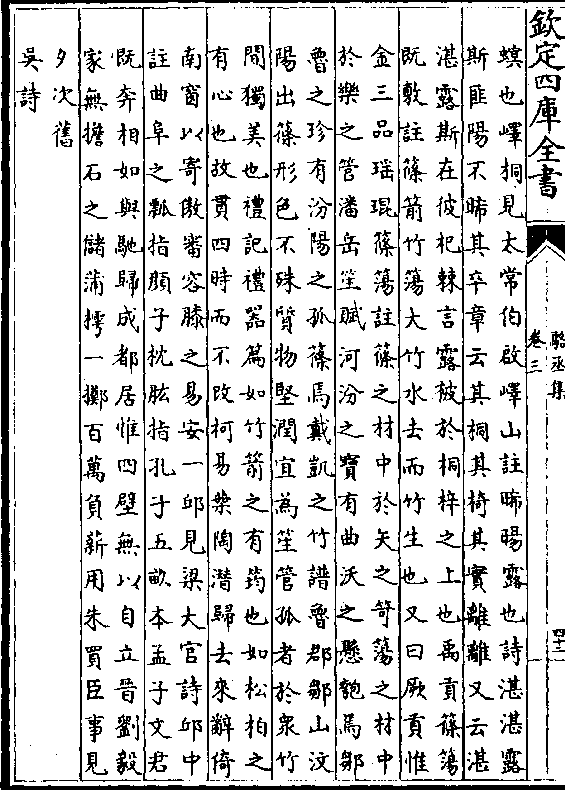 欽定四庫全書
駱丞集
卷三
四十二
螟也嶧桐見太常伯啟嶧山註晞暘露也詩湛湛露
斯匪陽不晞其卒章云其桐其椅其實離離又云湛
湛露斯在彼杞棘言露被於桐梓之上也禹貢篠簜
既敷註篠箭竹簜大竹水去而竹生也又曰厥貢惟
金三品瑶琨篠簜註篠之材中於矢之笴簜之材中
於樂之管潘岳笙賦河汾之寶有曲沃之懸匏焉鄒
魯之珍有汾陽之孤篠焉戴凱之竹譜魯郡鄒山汶
陽出篠形色不殊質物堅潤宜為笙管孤者於衆竹
間獨美也禮記禮器篇如竹箭之有筠也如松柏之
有心也故貫四時而不改柯易葉陶潛歸去來辭倚
南窗以寄傲審容膝之易安一邱見梁大官詩邱中
註曲阜之瓢指顔子枕肱指孔子五畝本孟子文君
既奔相如與馳歸成都居惟四壁無以自立晉劉毅
家無擔石之儲蒲樗一擲百萬負薪用朱買臣事見
夕次舊
吳詩